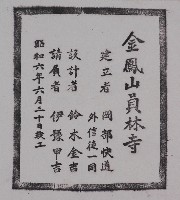 金鳳山員林寺
建立者 岡部快道
外信徒一同
設計者 鈴木金吉
請負者 伊藤甲吉
昭和六年六月二十日竣工